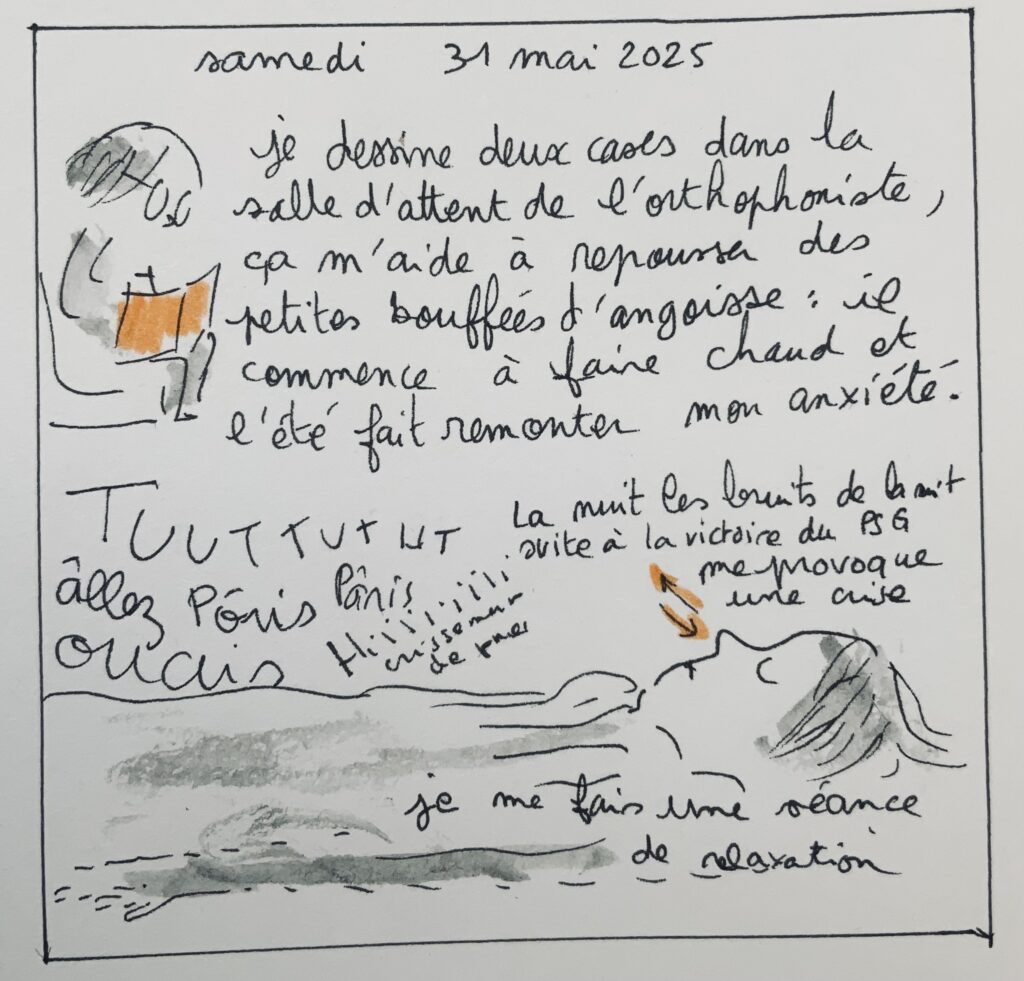 samedi 31 mai 2025
je dessine deux cases dans la
salle d'attent de l'orthophoniste,
ça m'aide à repousser des
petites bouffées d'angoisse : il
commence à faire chaud et
l'été fait remonter mon anxiété.
TUUTTUTUT
La nuit les bruits de la nuit
suite à la victoire du PSG
me provoque
une crise
âllez Pâris Pâris
ouais
Hiiiiiiii
crissement
de pneu
je me fais une séance
de relaxation